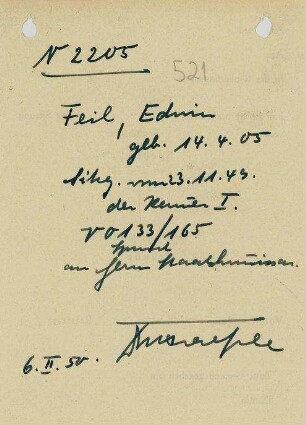 N 2205
521
Feil, Edwin
geb. 14.4.05
Sitzg. vom 23.11.49
der Kammer I.
VO 133/165
an Herrn Staatskommissar.
6.II.50.